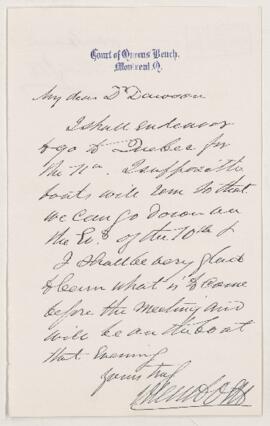 Court of Queens Bench,
Montreal, Q.
My dear Dr Dawson
I shall endeavor
to go to Quebec for
the 11th. I suppose the
boats will run so that
we can go down on
the Ev.g of the 10th &
I shall be very glad
to learn what is to come
before the meeting and
will be on the boat
that evening
Yours truly